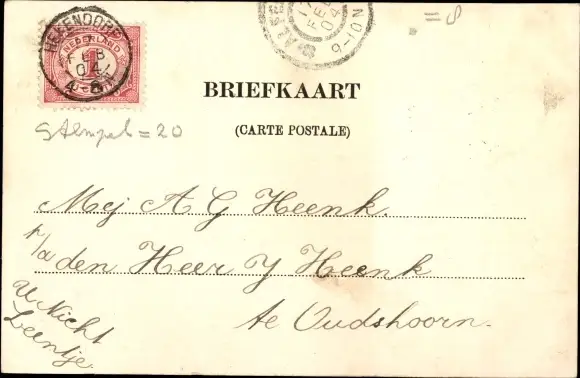 = 8
HEKENDORP
FEB
04
NEDERLAND
1
FEB
04
9-10N
BRIEFKAART
Stempel = 20
(CARTE POSTALE)
Mej A G Heenk.
p/a den Heer Y Heenk
te Oudshoorn.
Uw Nicht
Leentje